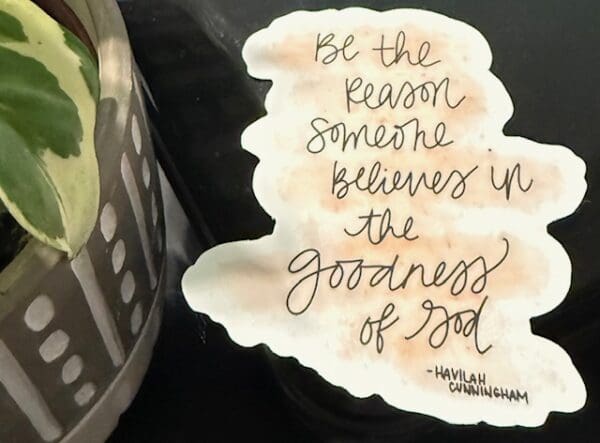 Be the
Reason
Someone
Believes in
the
goodness
of God
-HAVILAH
CUNNINGHAM